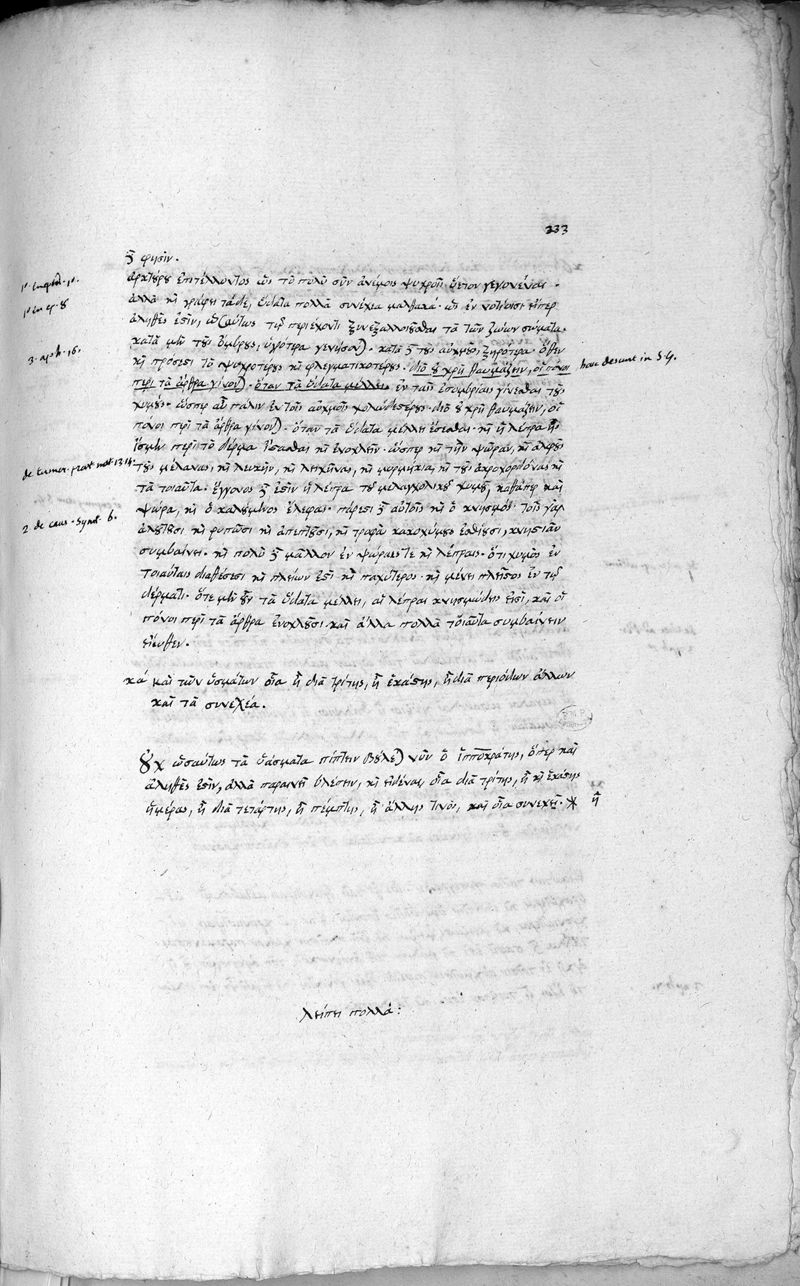 333
δὲ φησίν.
ἀρκτούρου ἐπιτέλλοντος ὡς τὸ πολὺ σὺν ἀνέμοις ψυχροῖς ὑετὸν γεγονέναι.
ἀλλὰ καὶ γράφει τάδε, ὕδατα πολλὰ συνέχεα μαλθακά. ὡς ἐν νοτίοισι εἴπερ
ἀληθές ἐστιν, ὡσαύτως τῷ περιέχοντι συνεξαλλοιοῦσθαι τὰ τῶν ζώων σώματα.
κατὰ μὲν τοὺς ὄμβρους, ὑγρότερα γενήσονται. κατὰ δὲ τοὺς αὐχμούς, ξηρότερα. ὅθεν
καὶ πρόσεστι τὸ ψυχροτέρους καὶ φλεγματικοτέρους. διὸ οὐ χρὴ θαυμάζειν, οἱ πόνοι
περὶ τὰ ἄρθρα γίνονται. ὅταν τὰ ὕδατα μέλλει ἐν ταῖς ἐπομβρίαις γίνεσθαι τοὺς
χυμούς. ὥσπερ αὖ πάλιν ἐν τοῖς αὐχμοῖς χολωδεστέρους. διὸ οὐ χρὴ θαυμάζειν, οἱ
πόνοι περὶ τὰ ἄρθρα γίνονται. ὅταν τὰ ὕδατα μέλλει ἔσεσθαι. καὶ ἡ λέπρα
ἴσμεν περὶ τὸ δέρμα ἵστασθαι καὶ ἐνοχλεῖν. ὥσπερ καὶ τὴν ψώραν, καὶ ἀλφοὺς
τοὺς μέλανας, καὶ λευκήν, καὶ λειχῆνας, καὶ μυρμηκίας καὶ τοὺς ἀκροχορδόνας καὶ
τὰ τοιαῦτα. ἔγγονος δὲ ἐστὶν ἡ λέπρα τοῦ μελαγχολικοῦ χυμοῦ, καθάπερ καὶ
ψώρα, καὶ ὁ καλούμενος ἐλέφας. πάρεστι δὲ αὐτοῖς καὶ ὁ κνησμός. τοῖς γὰρ
ἀλουτοῦσι καὶ ῥυπῶσι καὶ ἀπεπτοῦσι, καὶ τροφὰς κακοχύμους ἐσθίουσι, κνησιᾶν
συμβαίνει. καὶ πολὺ δὲ μᾶλλον ἐν ψώραις τε καὶ λέπραις. ὅτι χυμὸς ἐν
τοιαύταις διαθέσεσι καὶ πλείων ἐστὶ καὶ παχύτερος. καὶ μένει πλεῖστος ἐν τῷ
δέρματι. ὅτε μὲν οὖν τὰ ὕδατα μέλλει, αἱ λέπραι κνησμώδεις εἰσί, καὶ οἱ
πόνοι περὶ τὰ ἄρθρα ἐνοχλοῦσι. καὶ ἄλλα πολλὰ τοιαῦτα συμβαίνειν
εἴωθεν.
κα καὶ τῶν ὑσμάτων οἷα ἢ διὰ τρίτης, ἢ ἑκάστης, ἢ διὰ περιόδων ἄλλων
καὶ τὰ συνεχέα.
οὐχ ὡσαύτως τὰ ὑάσματα πίπτειν βούλεται νῦν ὁ ἱπποκράτης, ὅπερ καὶ
ἀληθές ἐστιν, ἀλλὰ παραινεῖ βλέπειν, καὶ εἰδέναι, οἷα διὰ τρίτης, ἢ καὶ ἑκάστης
ἡμέρας, ἢ διὰ τετάρτης, ἢ πέμπτης, ἢ ἄλλης τινός, καὶ οἷα συνεχεῖ. * ἢ
λείπει πολλά:
3. aph. 16.
2 de caus. Sympt. 6.
hac desunt in